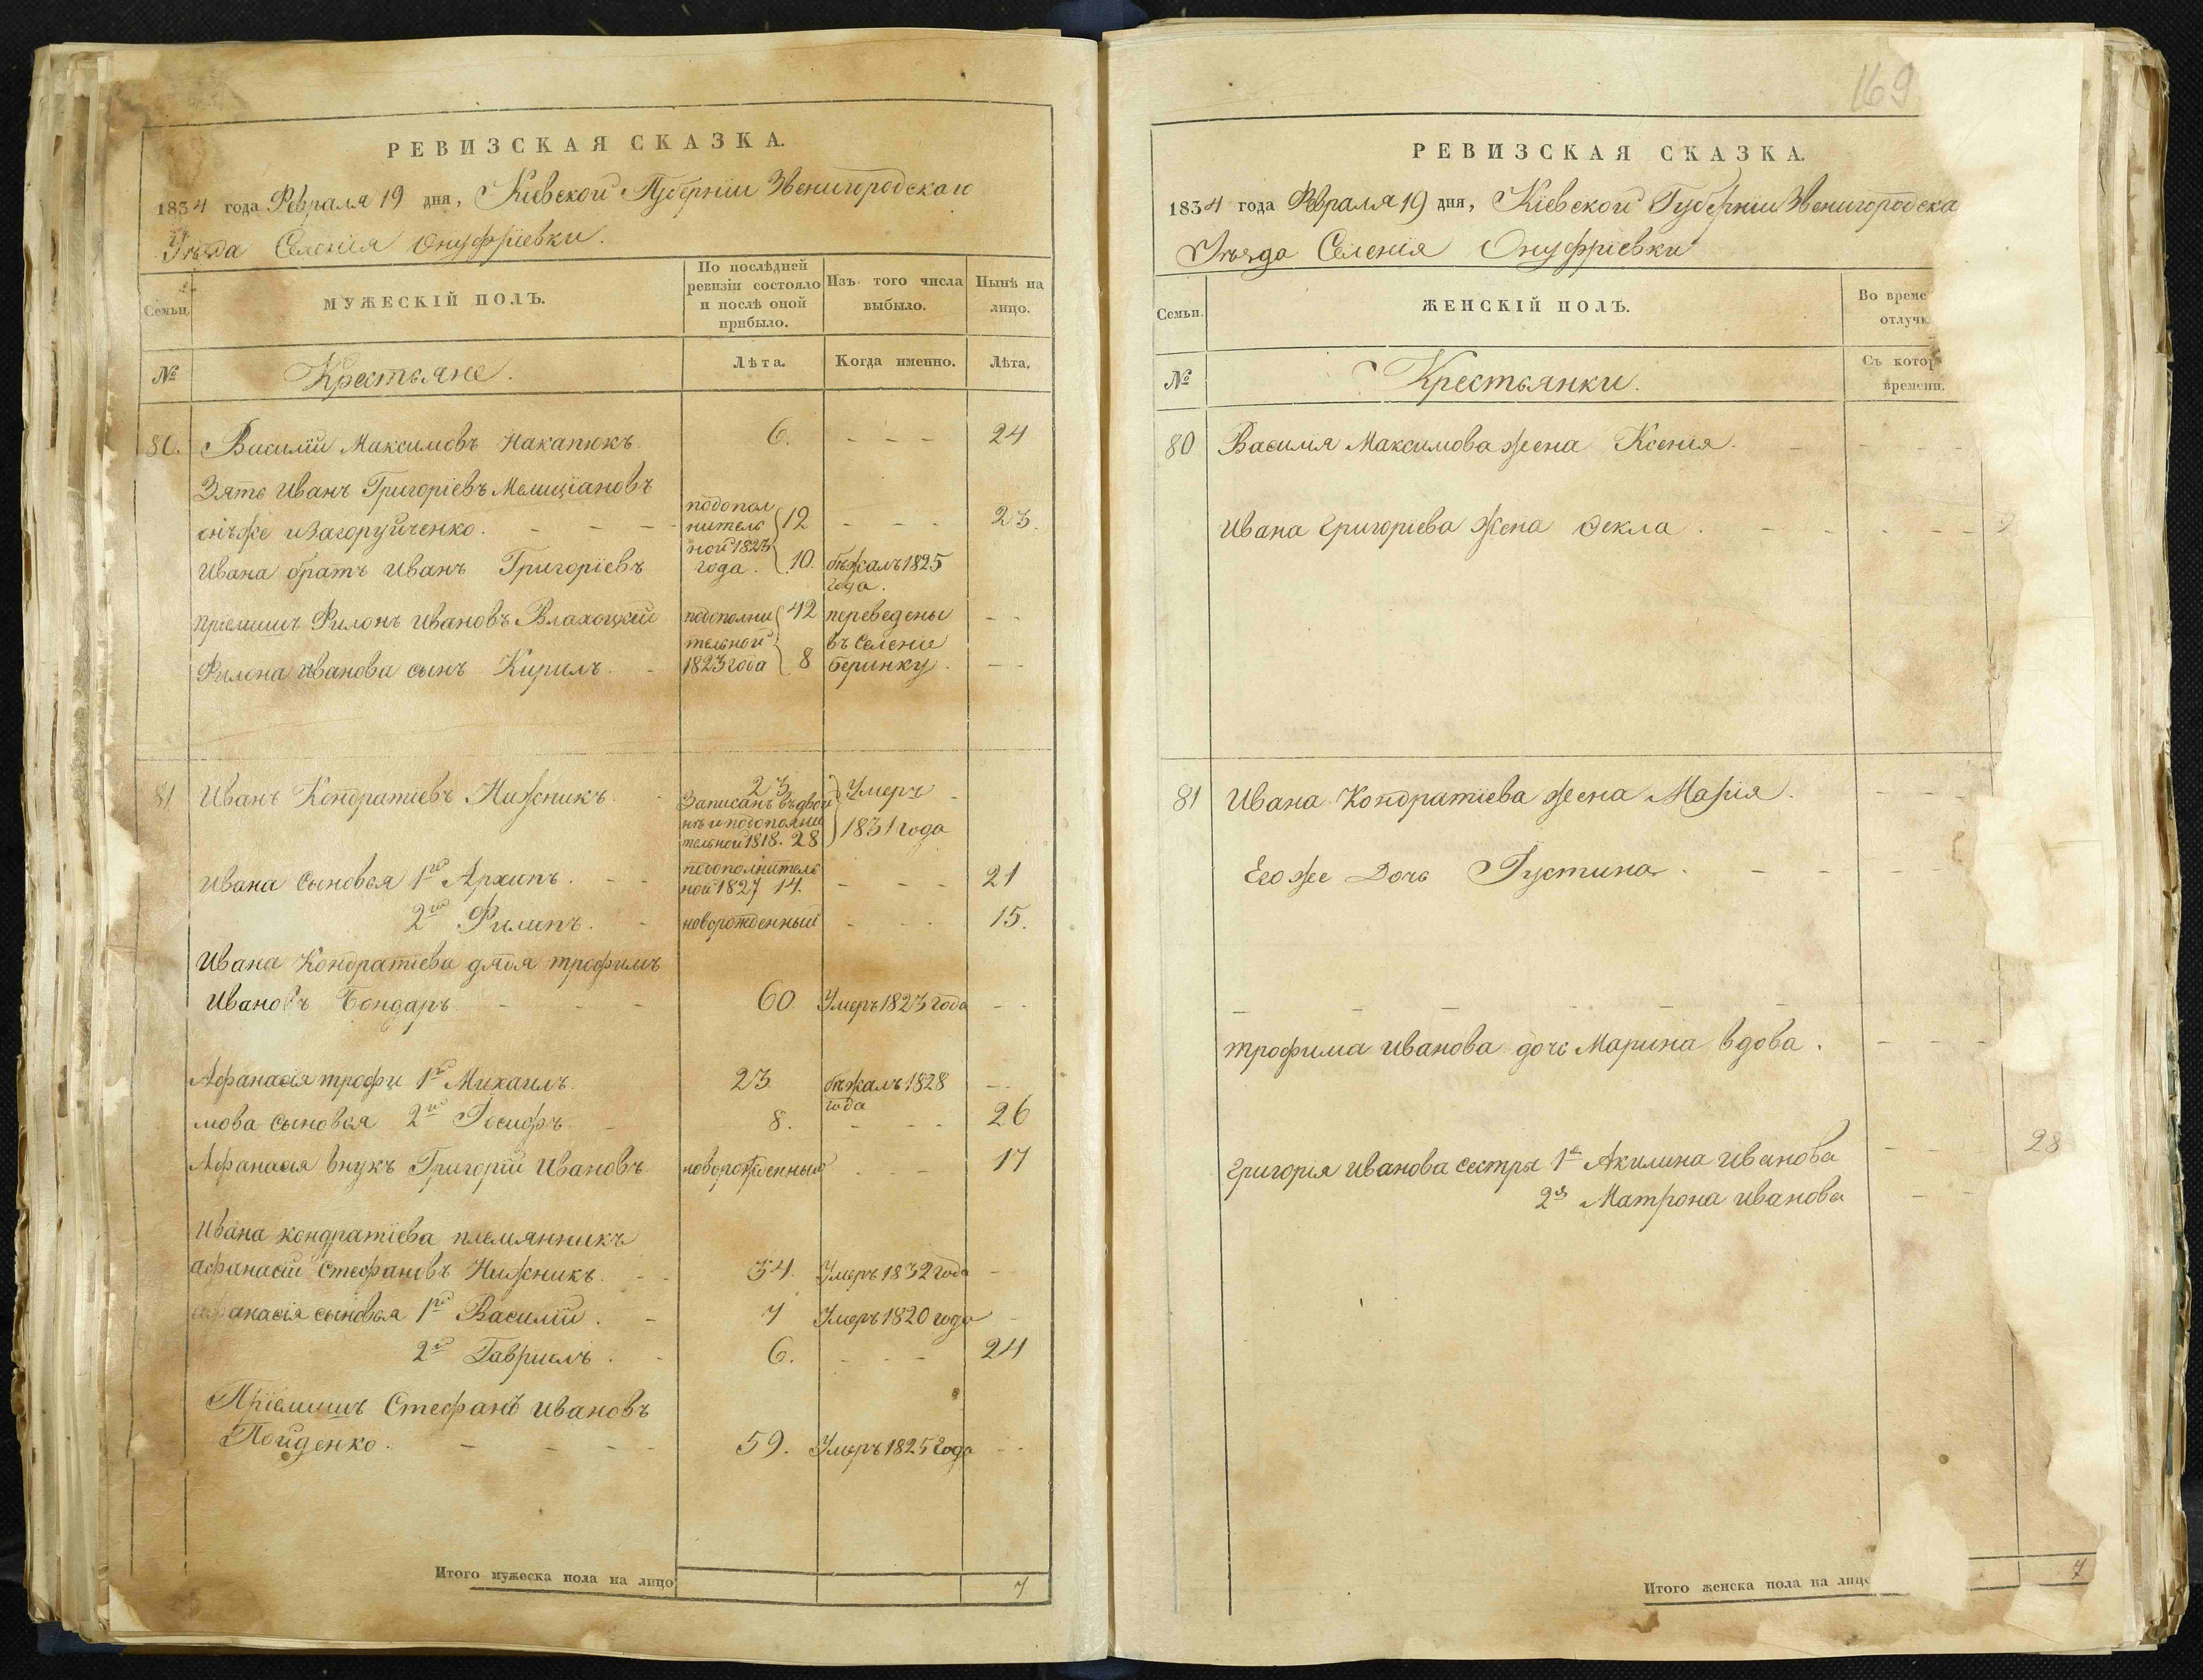 РЕВИЗСКАЯ СКАЗКА.
1834 года Февраля 19 дня, Кіевской Губерніи Звенигородскаго
Уѣзда Селенія Онуфріевки.
Семьи.
МУЖЕСКІЙ ПОЛЪ.
По послѣдней ревизіи состояло и послѣ оной прибыло.
Изъ того числа выбыло.
Нынѣ на лицо.
№
Крестьяне.
Лѣта.
Когда именно.
Лѣта.
80. Василій Максимовъ Накапюкъ 6. - - - 24
Зять Иванъ Григоріевъ Мелиціановъ
онъже и Загоруйченко. - - - подополнитель 12 - - - 23.
Ивана братъ Иванъ Григоріевъ ной 1823 года. 10. бѣжалъ 1825 года.
пріемышъ Филонъ Ивановъ Влахоцкій подополни 42 переведены - -
тельной въ Селеніе
Филона Иванова сынъ Кирилъ. - 1823 года 8 беринку. - -
81 Иванъ Кондратіевъ Нижникъ. - 23 Умеръ -
Записанъ вдвой
нѣ и подополни 1831 года
тельной 1818. 28
Ивана сыновья 1й Архипъ. - - подополнитель
ной 1827 14. - - - 21
2й Филипъ. - новорожденный - - - 15.
Ивана Кондратіева дядя трофимъ
Ивановъ Бондаръ - - - 60 Умеръ 1823 года - -
Афанасія трофи 1й Михаилъ. 23 бѣжалъ 1828 года - -
мова сыновья 2й Іосифъ. - 8. - - - 26
Афанасія внукъ Григорій Ивановъ новорожденный - - - 17
Ивана кондратіева племянникъ
афанасій Стефановъ Нижникъ. - - 34. Умеръ 1832 года -
афанасія сыновья 1й Василій. - 7 Умеръ 1820 года -
2й Гавриилъ. - 6. - - - 24
Пріемышъ Стефанъ Ивановъ
Пойденко. - - - - 59. Умеръ 1825 года - -
Итого мужеска пола на лицо 7
169
РЕВИЗСКАЯ СКАЗКА.
1834 года Февраля 19 дня, Кіевской Губерніи Звенигородска
Уѣзда Селенія Онуфріевки
Семьи.
ЖЕНСКІЙ ПОЛЪ.
Во време
отлучк
№
Крестьянки.
Съ котор
времени.
80 Василія Максимова жена Ксенія. - - - -
Ивана Григоріева жена Фекла. - - - - -
81 Ивана Кондратіева жена Марія. - - -
Его же Дочь Іустина. - - - -
- - - - - -
трофима Иванова дочь Марина вдова. - - -
Григорія Иванова сестры 1я Акилина Иванова - - 28
2я Матрона Иванова - -
Итого женска пола на лице 7